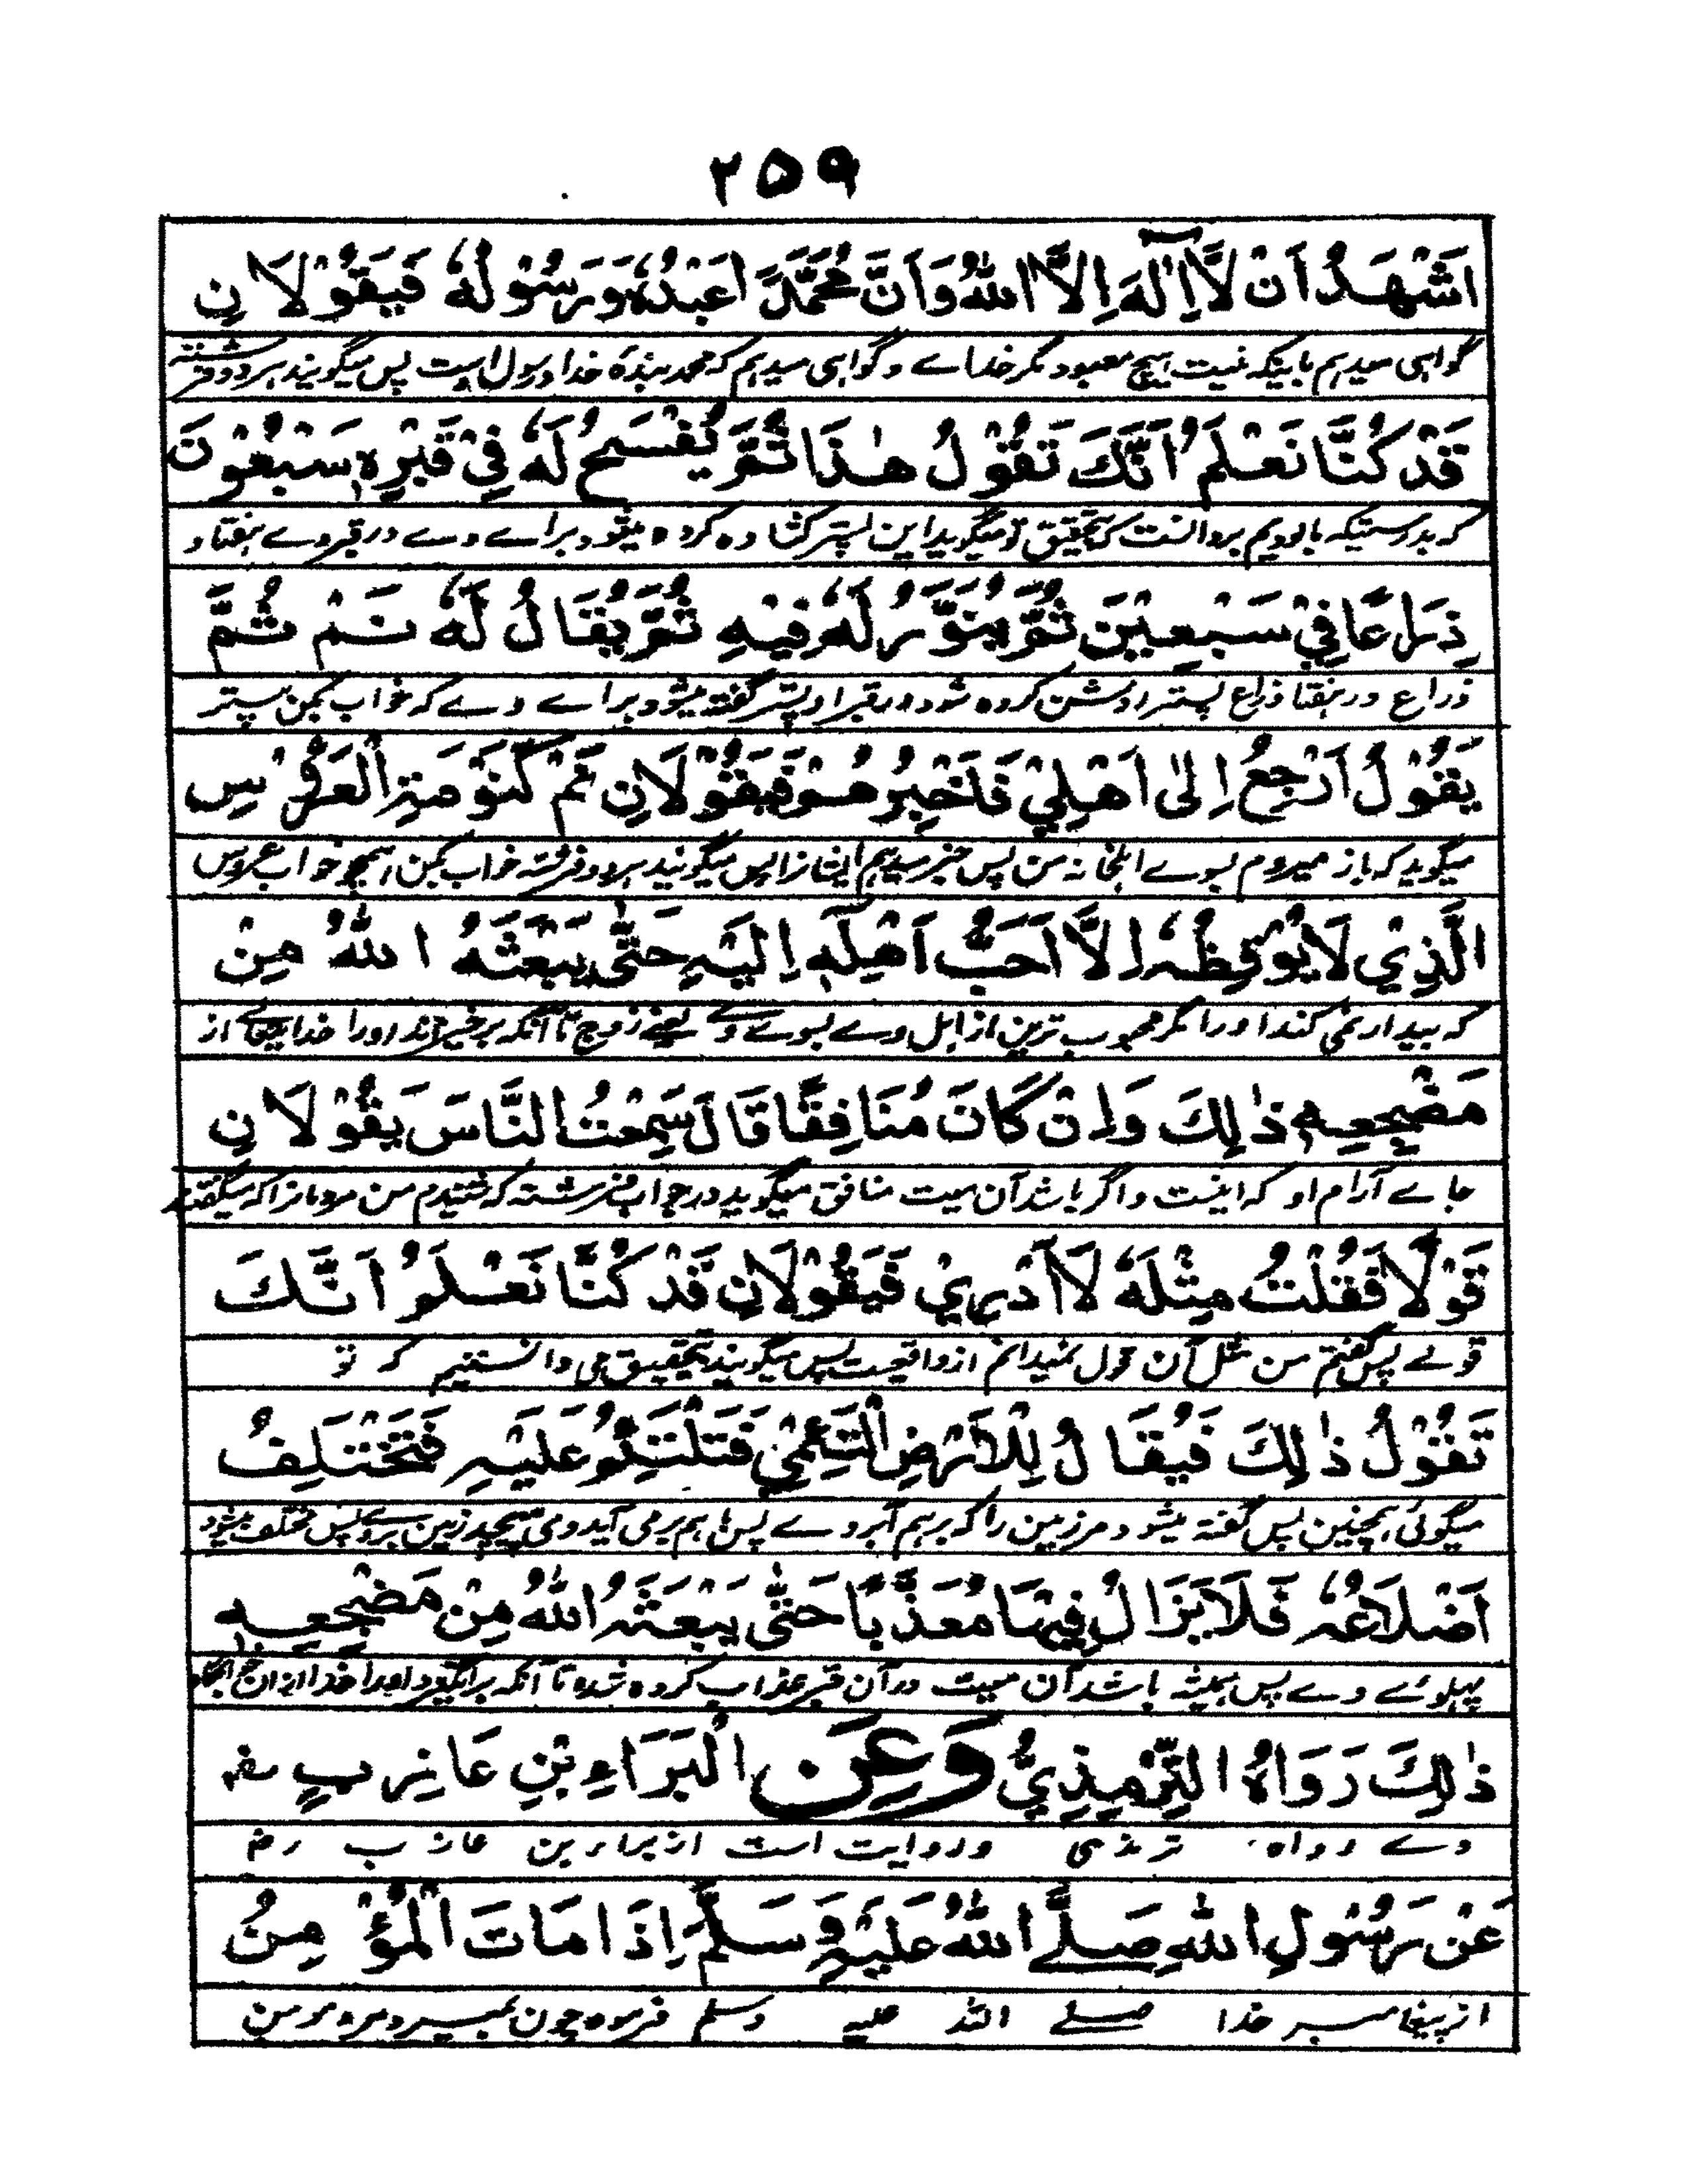 ۲۵۹
اَشْهَدُ اَنْ لَّا اِلٰهَ اِلَّا اللّٰهُ وَاَنَّ مُحَمَّدًا عَبْدُهٗ وَرَسُوْلُهٗ فَيَقُوْلَانِ
گواہی میدہم باینکہ نیست ہیچ معبود مگر خداے و گواہی میدہم کہ محمد بندۂ خدا و رسول اوست پس میگویند ہر دو فرشتہ
قَدْ كُنَّا نَعْلَمُ اَنَّكَ تَقُوْلُ هٰذَا ثُمَّ يُفْسَحُ لَهٗ فِيْ قَبْرِهٖ سَبْعُوْنَ
کہ بدرستیکہ ما بودیم بدانست کہ بتحقیق تو میگوید این پستر کشادہ کردہ میشود براے وے در قبر وے ہفتاد
ذِرَاعًا فِيْ سَبْعِيْنَ ثُمَّ يُنَوَّرُ لَهٗ فِيْهِ ثُمَّ يُقَالُ لَهٗ نَمْ ثُمَّ
ذراع در ہفتاد ذراع پستر روشن کردہ شود در قبر او پستر گفتہ میشود براے وے کہ خواب بکن پستر
يَقُوْلُ اَرْجِعُ اِلٰى اَهْلِيْ فَاُخْبِرُهُمْ فَيَقُوْلَانِ نَمْ كَنَوْمَةِ الْعَرُوْسِ
میگوید کہ باز میروم بسوے اہلخانہ من پس خبر میدہم ایشانرا پس میگویند ہر دو فرشتہ خواب بکن ہمچو خواب عروس
الَّذِيْ لَا يُوْقِظُهٗ اِلَّا اَحَبُّ اَهْلِهٖ اِلَيْهِ حَتّٰى يَبْعَثَهُ اللّٰهُ مِنْ
کہ بیدار نمی کند اورا مگر محبوب ترین از اہل وے بسوے وے یعنے زوج تا آنکہ برخیزاند اورا خدایتعالے از
مَضْجَعِهٖ ذٰلِكَ وَاِنْ كَانَ مُنَافِقًا قَالَ سَمِعْتُ النَّاسَ يَقُوْلَانِ
جاے آرام او کہ اینست و اگر باشد آن میت منافق میگوید در جواب فرشتہ کہ شنیدم من مردمانرا کہ میگفتند
قَوْلًا فَقُلْتُ مِثْلَهٗ لَا اَدْرِيْ فَيَقُوْلَانِ قَدْ كُنَّا نَعْلَمُ اَنَّكَ
قولے پس گفتم من مثل آن قول نمیدانم از واقعیت پس میگویند بتحقیق می دانستیم کہ تو
تَقُوْلُ ذٰلِكَ فَيُقَالُ لِلْاَرْضِ الْتَئِمِيْ فَتَلْتَئِمُ عَلَيْهِ فَتَخْتَلِفُ
میگوئی ہمچنین پس گفتہ میشود مر زمین را کہ برہم آ بر وے پس باہم بر می آید و می پیچد زمین بروے پس مختلف میشود
اَضْلَاعُهٗ فَلَا يَزَالُ فِيْهَا مُعَذَّبًا حَتّٰى يَبْعَثَهُ اللّٰهُ مِنْ مَضْجَعِهٖ
پہلوے وے پس ہمیشہ باشد آن میت در آن قبر عذاب کردہ شدہ تا آنکہ برانگیزد اورا خدا از
ذٰلِكَ رَوَاهُ التِّرْمِذِيُّ وَعَنِ الْبَرَاءِ بْنِ عَازِبٍ رض
وے رواہ ترمذی و روایت است از براء بن عازب رض
عَنْ رَسُوْلِ اللّٰهِ صَلَّے اللّٰهُ عَلَيْهِ وَسَلَّمَ اِذَا مَاتَ الْمُؤْمِنُ
از پیغامبر خدا صلے اللہ علیہ وسلم فرمودہ چون بمیرد مرد مومن